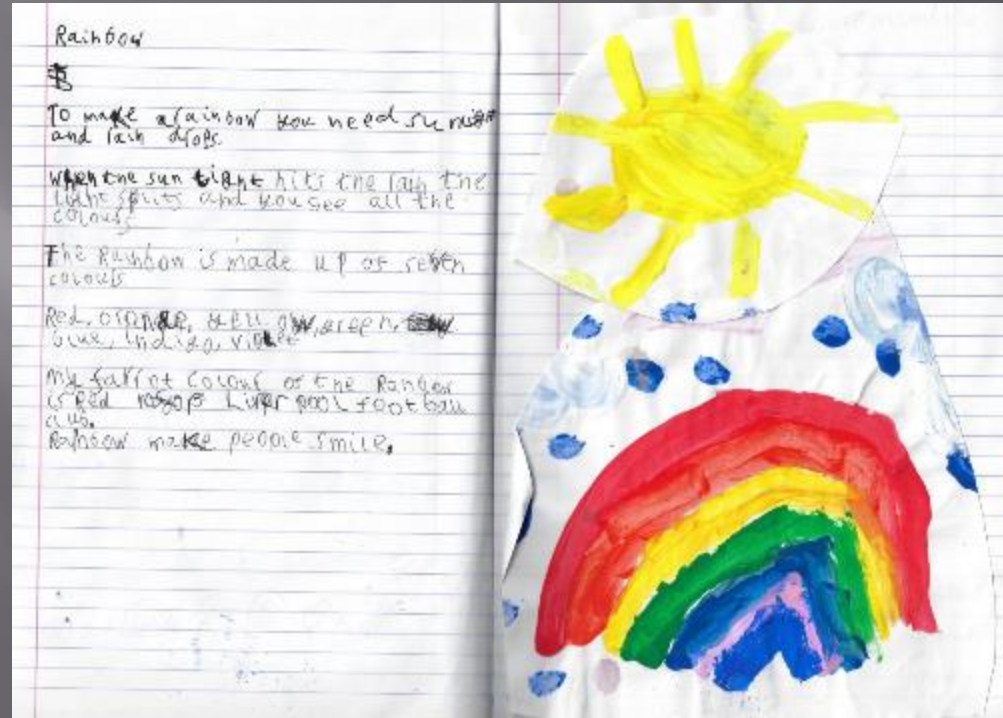 Rainbow
To make a rainbow you need sun
and rain drops
When the sun light hits the rain the
light splits and you see all the
colours
The Rainbow is made up of seven
colours
Red, orange, yellow, green,
blue, indigo, violet
My favrot colour of the Rainbow
is Red Liverpool football
club.
Rainbow make people smile.